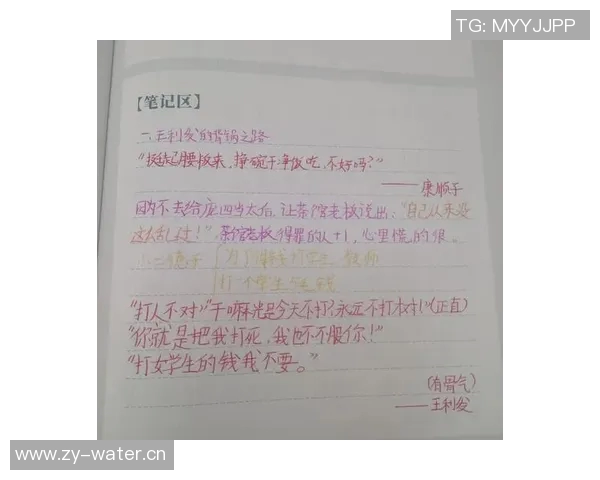 TG: MYYJJPP
【笔记区】
一、王利发的背锅之路
"挺起腰板来,挣碗干净饭吃,不好吗?"
——康顺子
因为不去给庞四当太后,让茶馆老板说出:"自己从来没
这么乱过!"茶馆老板得罪的人+1,心里慌的很。
二德子 为了赚钱打学生 教师
打一个学生 钱
"打人不对""干嘛光是今天不打?永远不打才对!"(正直)
"你就是把我打死,我也不服你!"
"打女学生的钱我不要。"
(有骨气)
——王利发
www.zy-water.cn